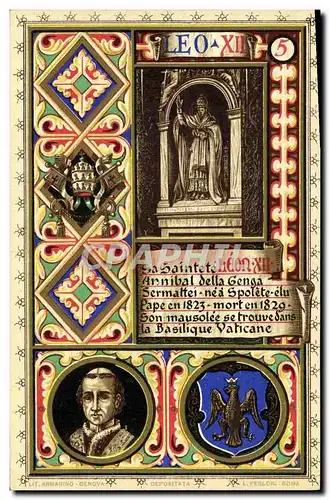 LEO·XII
5
Sa Sainteté Léon·XII·
Annibal della Genga
Sermattei·né à Spolète·élu
Pape en 1823·mort en 1829·
Son mausolée se trouve dans
la Basilique Vaticane
LIT. ARMANINO - GENOVA
DEPOSITATA